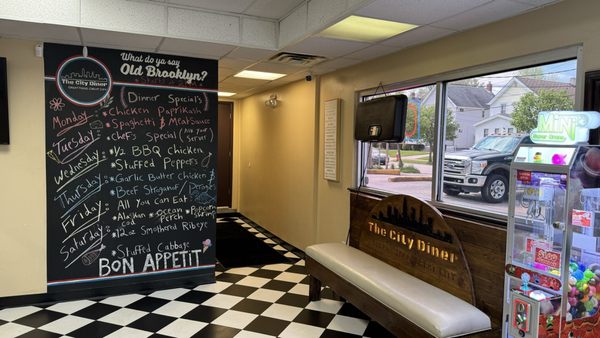 The City Diner
What do ya say?
Old Brooklyn?
(Dinner Specials)
Monday
*Chicken Paprikash
*Spaghetti & Meat Sauce
Tuesday
*Chef's Special
Wednesday
*1/2 BBQ Chicken
*Stuffed Peppers
Thursday
*Garlic Butter Chicken
*Beef Stroganoff
Friday
All You Can Eat
*Alaskan Cod
*Ocean Perch
*Popcorn Shrimp
Saturday
*12oz Smothered Ribeye
*Stuffed Cabbage
BON APPETIT
The City Diner
MINI